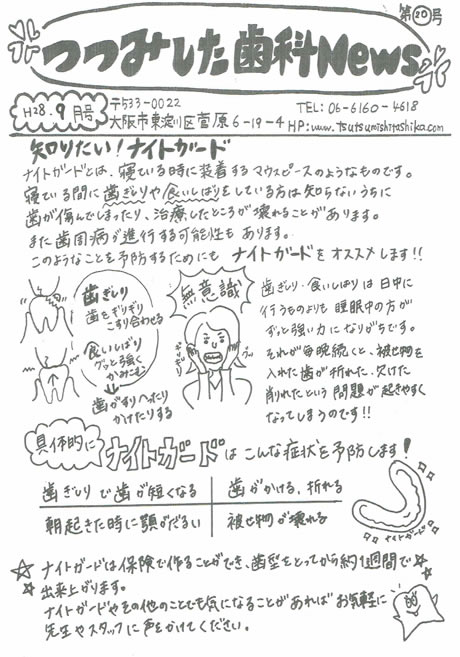 第20号
つつみした歯科News
H28.9月号
〒533-0022
大阪市東淀川区菅原6-19-4
TEL: 06-6160-4618
HP: www.tsutsumishitashika.com
知りたい！ナイトガード
ナイトガードとは、寝ている時に装着するマウスピースのようなものです。
寝ている間に歯ぎしりや食いしばりをしている方は知らないうちに
歯が傷んでしまったり、治療したところが壊れることがあります。
また歯周病が進行する可能性もあります。
このようなことを予防するためにも ナイトガードをオススメします!!
歯ぎしり
歯をギリギリ
こすり合わせる
食いしばり
グッと強く
かみこむ
歯がすりへったり
かけたりする
無意識
歯ぎしり・食いしばりは日中に
行うものよりも睡眠中の方が
ずっと強い力になりがちです。
それが毎晩続くと、被せ物を
入れた歯が折れた、欠けた
削れたという問題が起きやすく
なってしまうのです!!
具体的に
ナイトガードはこんな症状を予防します！
歯ぎしりで歯が短くなる
歯がかける、折れる
朝起きた時に顎がだるい
被せ物が壊れる
ナイトガード
ナイトガードは保険で作ることができ、歯型をとってから約1週間で
出来上がります。
ナイトガードやその他のことでも気になることがあればお気軽に
先生やスタッフに声をかけてください。